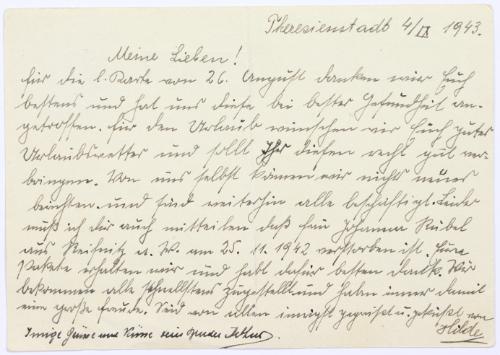 Theresienstadt 4/IX 1943.
Meine Lieben!
für die l. Karte von 26. August danken wir Euch
bestens und hat uns diese bei bester Gesundheit an-
getroffen. Für den Urlaub wünschen wir Euch gutes
Urlaubswetter und sollt Ihr diesen recht gut ver-
bringen. Von uns selbst können wir nichts neues
berichten und sind weiterhin alle beschäftigt. Leider
muß ich dir auch mitteilen daß Frau Johanna Kübel
aus a. W. am 25. 11. 1942 verstorben ist. Eure
Pakete erhalten wir und habt dafür besten Dank. Wir
bekommen alle schnellstens zugestellt und haben immer damit
eine große Freude. Seid von allen innigst gegrüßt u. geküßt von
Hilde
Innige Grüsse und Küsse